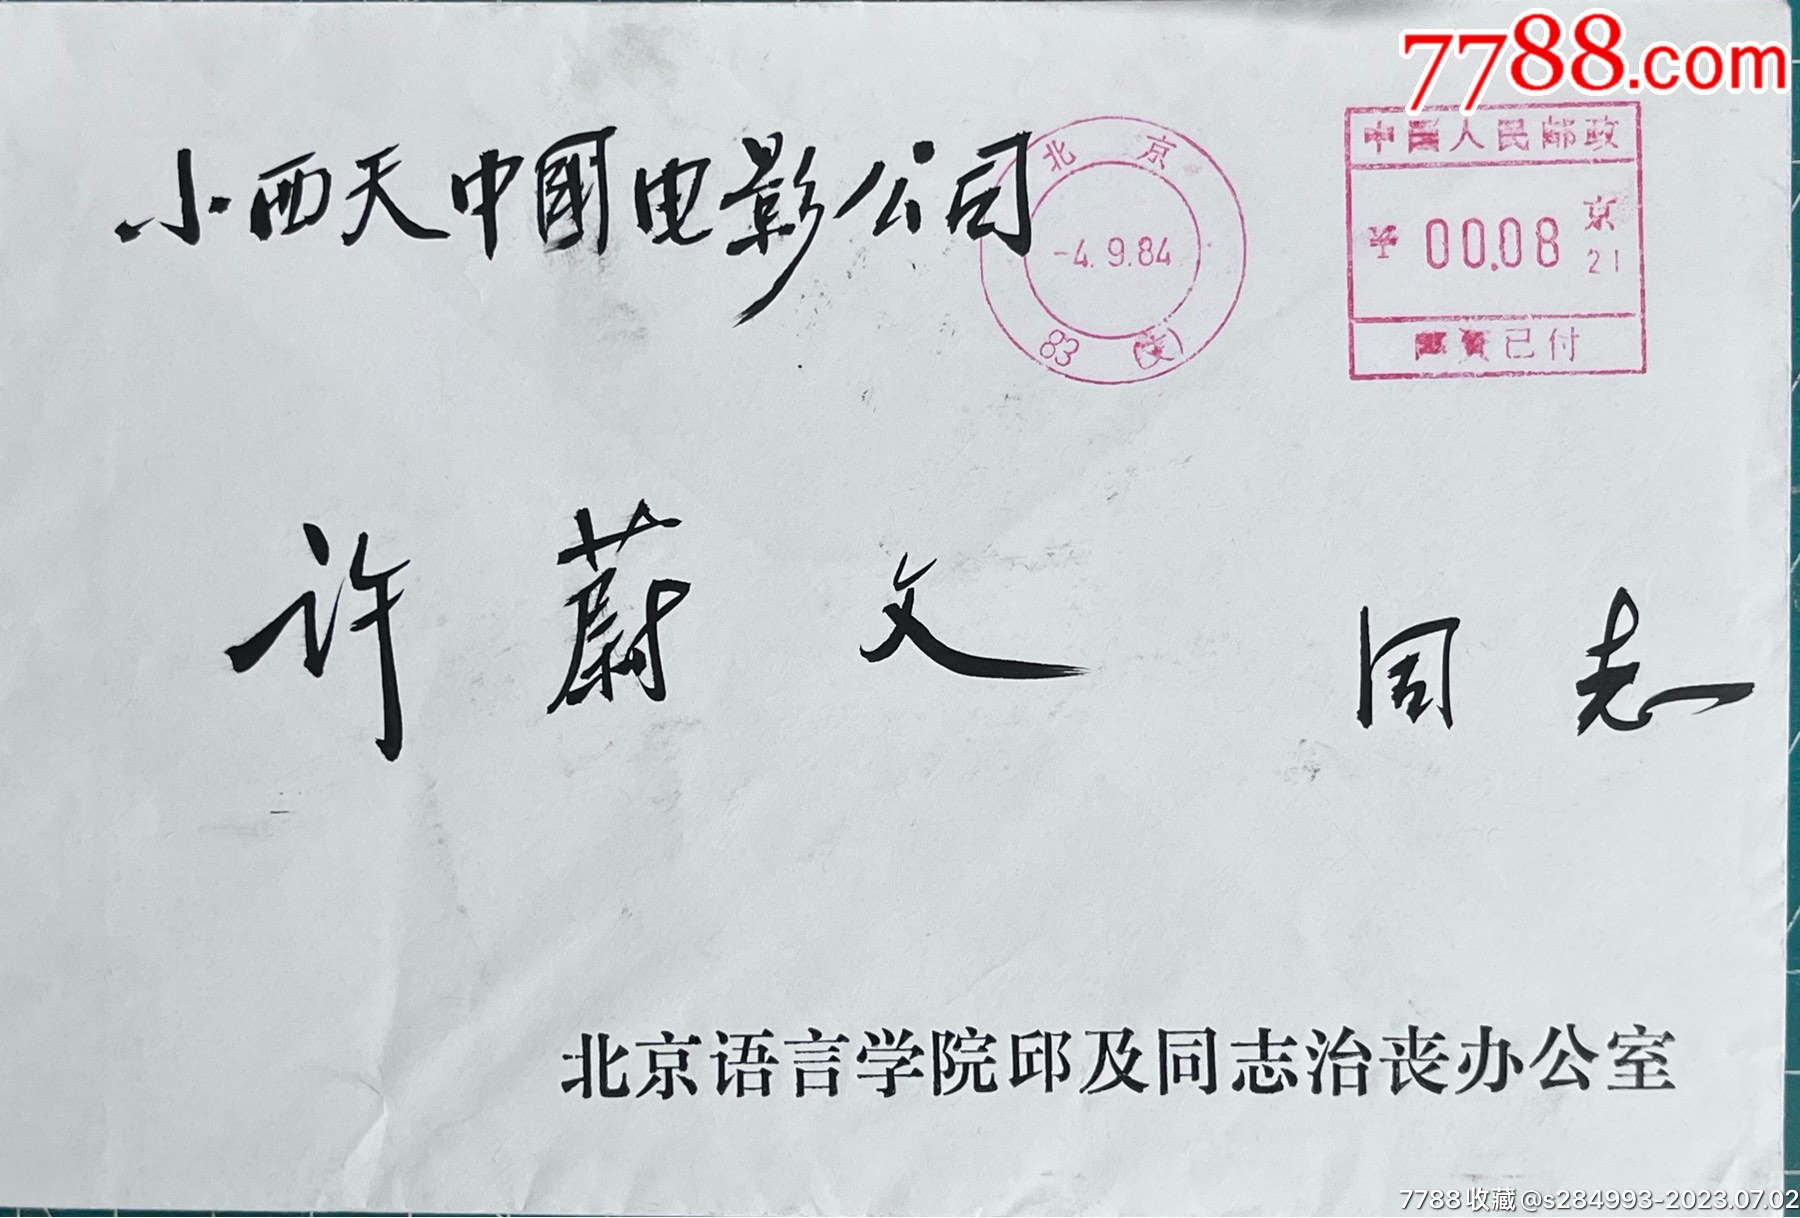 7788.com
中国人民邮政
小西天中國电影公司
北京
-4.9.84
83 (支)
¥ 00.08 京
21
邮资已付
许蔚文 同志
北京语言学院邱及同志治丧办公室
7788收藏@s284993-2023.07.02